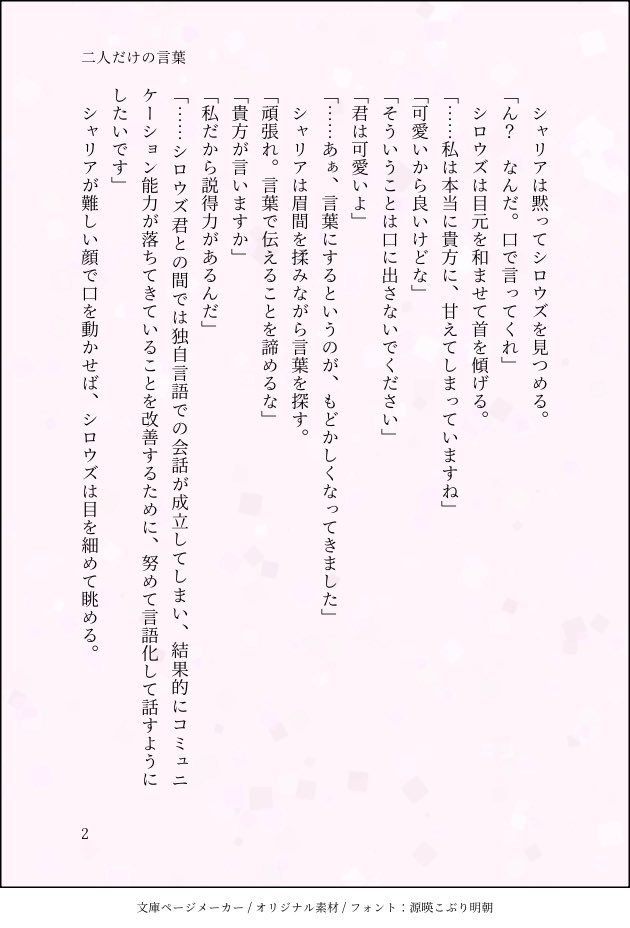 二人だけの言葉
　シャリアは黙ってシロウズを見つめる。
「ん？　なんだ。口で言ってくれ」
　シロウズは目元を和ませて首を傾げる。
「……私は本当に貴方に、甘えてしまっていますね」
「可愛いから良いけどな」
「そういうことは口に出さないでください」
「君は可愛いよ」
「……あぁ、言葉にするというのが、もどかしくなってきました」
　シャリアは眉間を揉みながら言葉を探す。
「頑張れ。言葉で伝えることを諦めるな」
「貴方が言いますか」
「私だから説得力があるんだ」
「……シロウズ君との間では独自言語での会話が成立してしまい、結果的にコミュニ
ケーション能力が落ちてきていることを改善するために、努めて言語化して話すように
したいです」
　シャリアが難しい顔で口を動かせば、シロウズは目を細めて眺める。
2
文庫ページメーカー / オリジナル素材 / フォント：源暎こぶり明朝